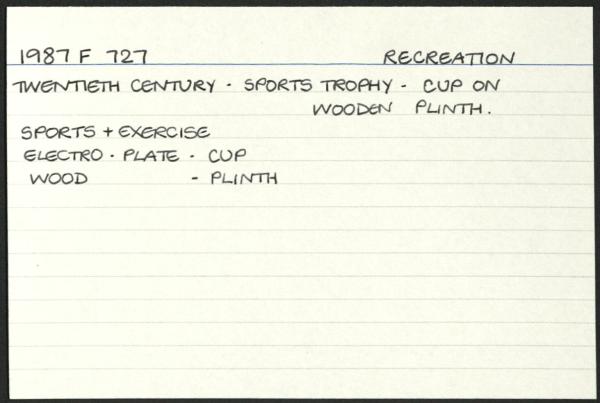 1987 F 727 RECREATION
TWENTIETH CENTURY - SPORTS TROPHY - CUP ON
WOODEN PLINTH.
SPORTS + EXERCISE
ELECTRO - PLATE - CUP
WOOD - PLINTH